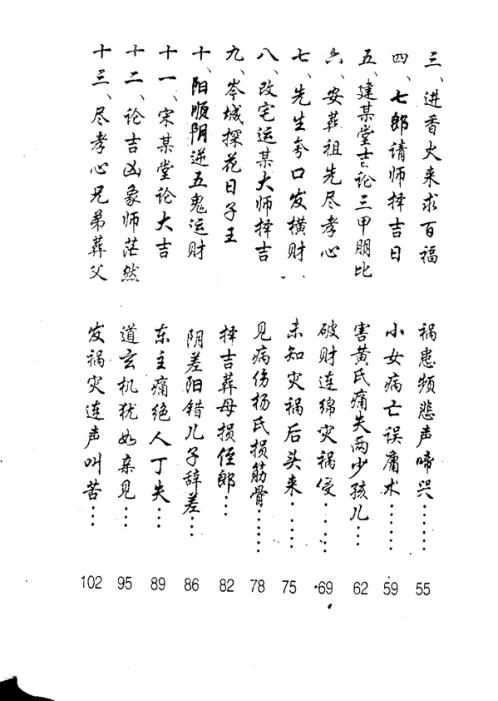 三、进香火来求百福 祸患频悲声啼哭…… 55
四、七郎请师择吉日 小女病亡误庸术…… 59
五、建某堂吉论三甲朋比 害黄氏痛失两少孩儿… 62
六、安葬祖先尽孝心 破财连绵灾祸侵… 69
七、先生夸口发横财 未知灾祸后头来…… 75
八、改宅运某大师择吉 见病伤杨氏损筋骨…… 78
九、岑城探花日子王 择吉葬母损侄郎… 82
十、阳顺阴逆五鬼运财 阴差阳错儿子辞差… 86
十一、宋某堂论大吉 东主痛绝人丁失… 89
十二、论吉凶象师茫然 道玄机犹如亲见… 95
十三、尽孝心兄弟葬父 发祸灾连声叫苦… 102